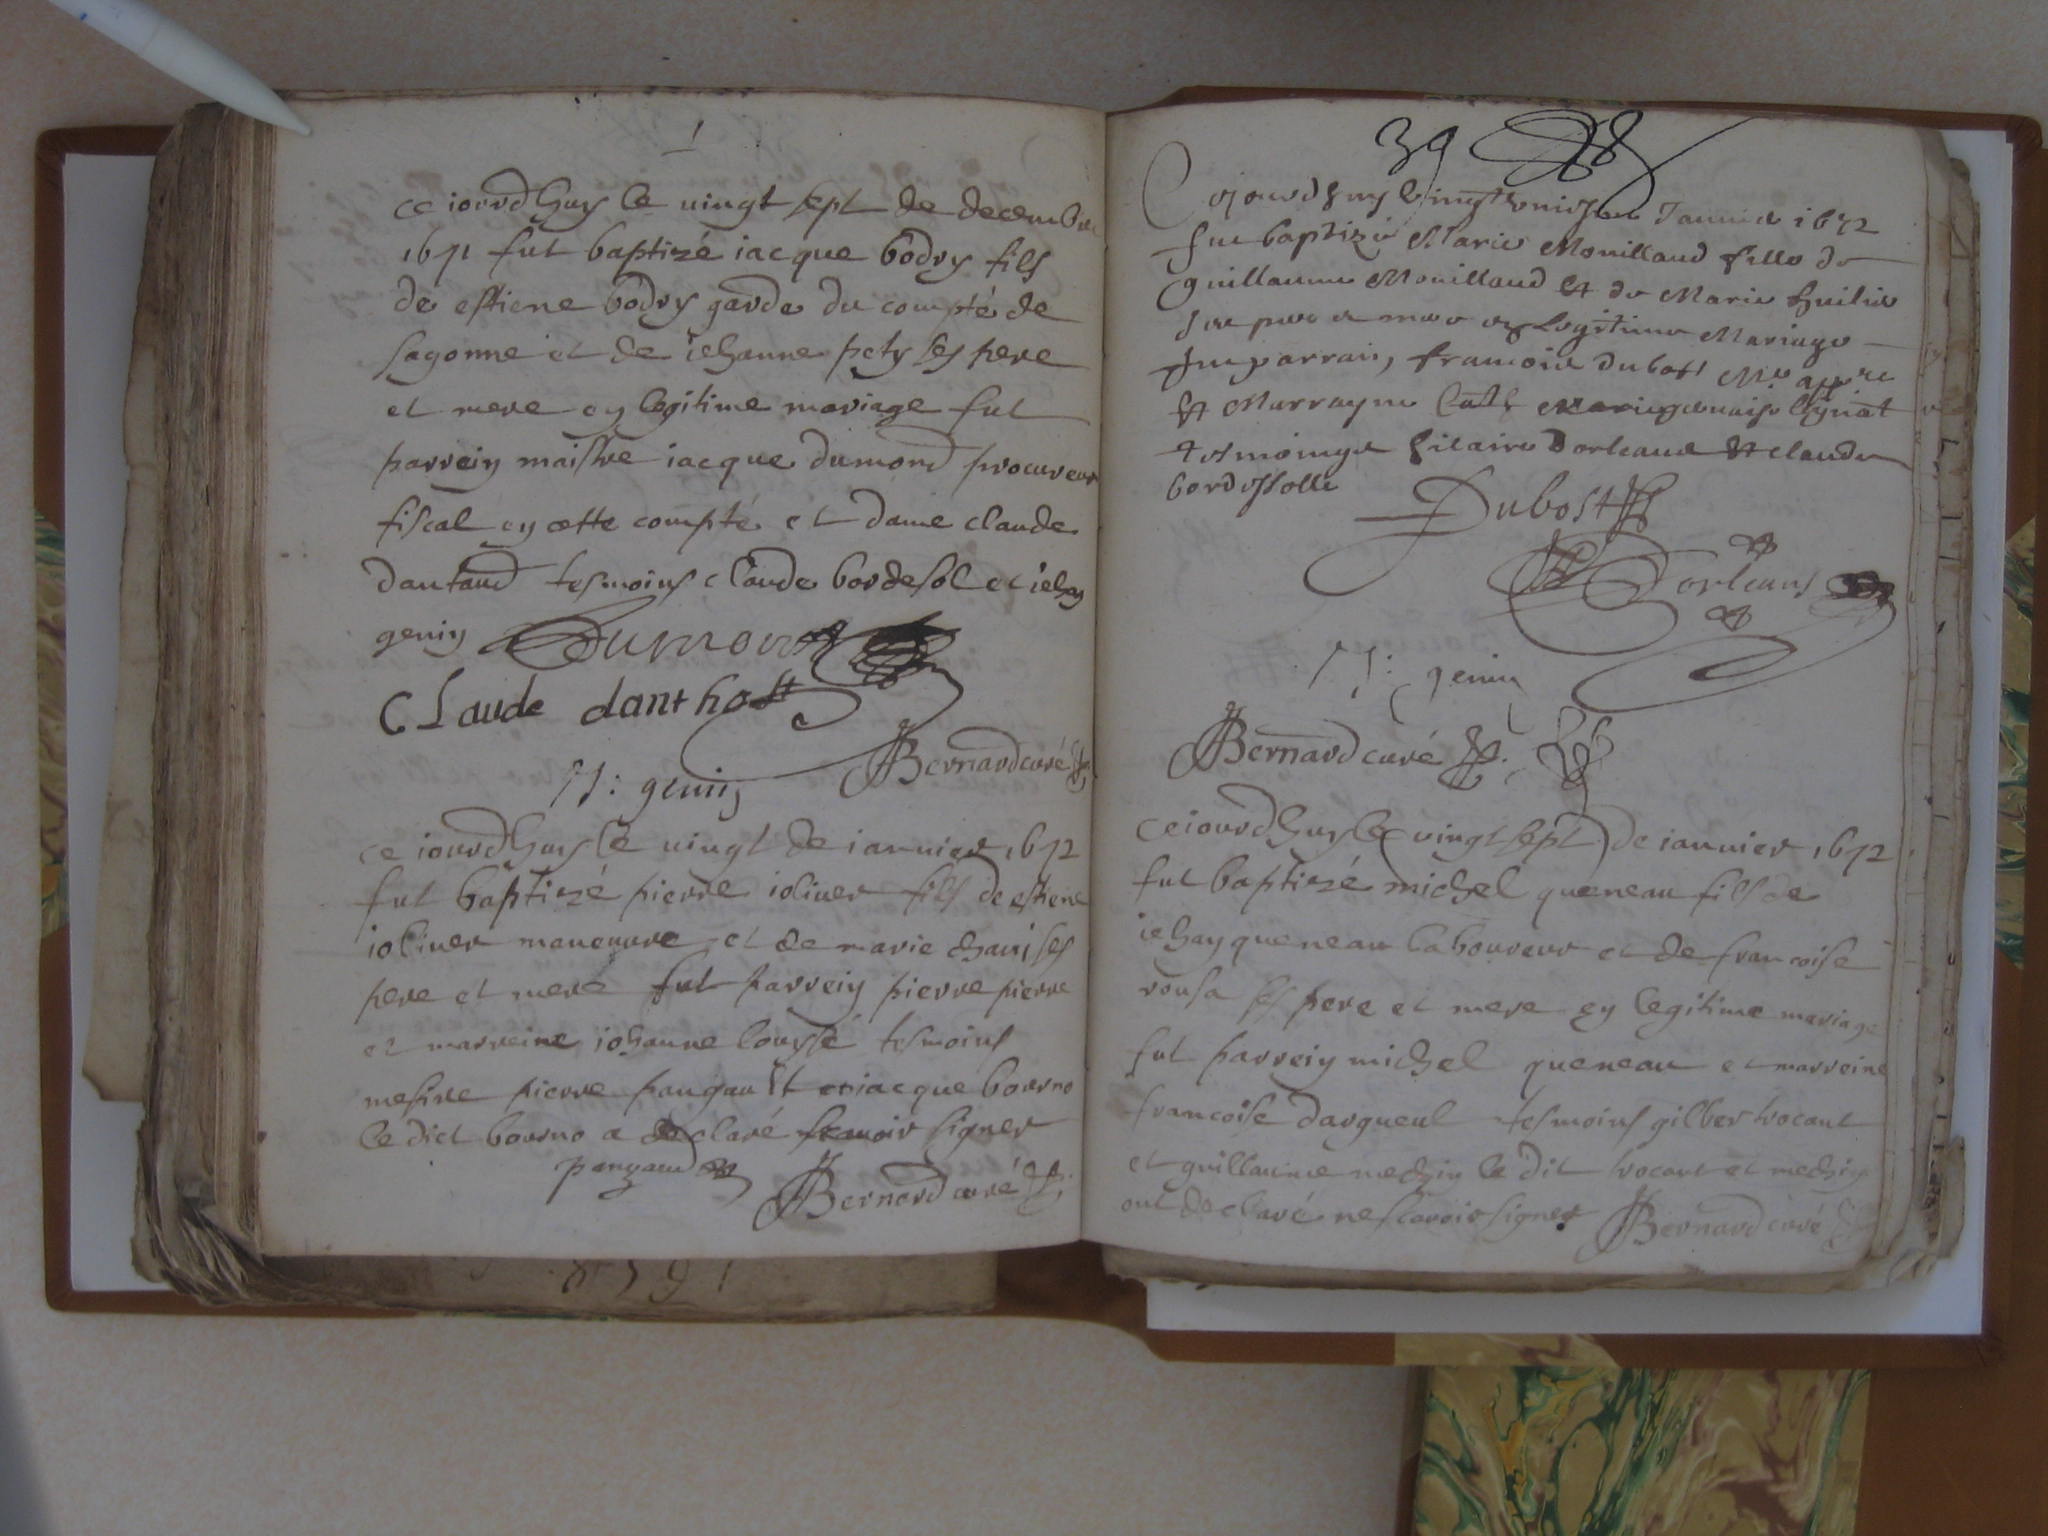 ce iourdhuy le uingt sept de decembre
1671 fut baptizé iacque bodry fils
de estiene bodry garde du compté de
sagonne et de iehanne pety ses pere
et mere en legitime mariage fut
parrein maistre iacque dumond procureur
fiscal en cette compté et dame claude
dantaud tesmoins claude bordesol et iehan
genin Dumont
CLaude danthost
genin Bernard curé
ce iourdhuy le uingt de iannier 1672
fut baptizé pierre ioliuer fils de estiene
ioliuer maneuure et de marie chaui ses
pere et mere fut parrein pierre pierre
et marreine iohanne lousse tesmoins
mesire pierre pangault et iacque bourno
le dict bourno a declaré scauoir signer
pangaud Bernard curé
39
Cejourdhuy Januier 1672
fut baptizée Marie Mouillaud fille de
guillaume Mouillaud Et de Marie
ses pere et mere en Legitime Mariage
fut parrain, francois dubost Me
Et Marrayne
tesmoings hilaire Dorleans Et claude
bordessolle
Dubost
Dorleans
genin
Bernard curé
ceiourdhuy le uingt sept de iannier 1672
fut baptizé michel queneau fils de
iehan queneau laboureur et de francoise
rousa ses pere et mere en legitime mariage
fut parrein michel queneau et marreine
francoise dargueul tesmoins gilber trocant
et guillaume mechin le dit trocant et mechin
ont declaré ne scauoir signer Bernard curé